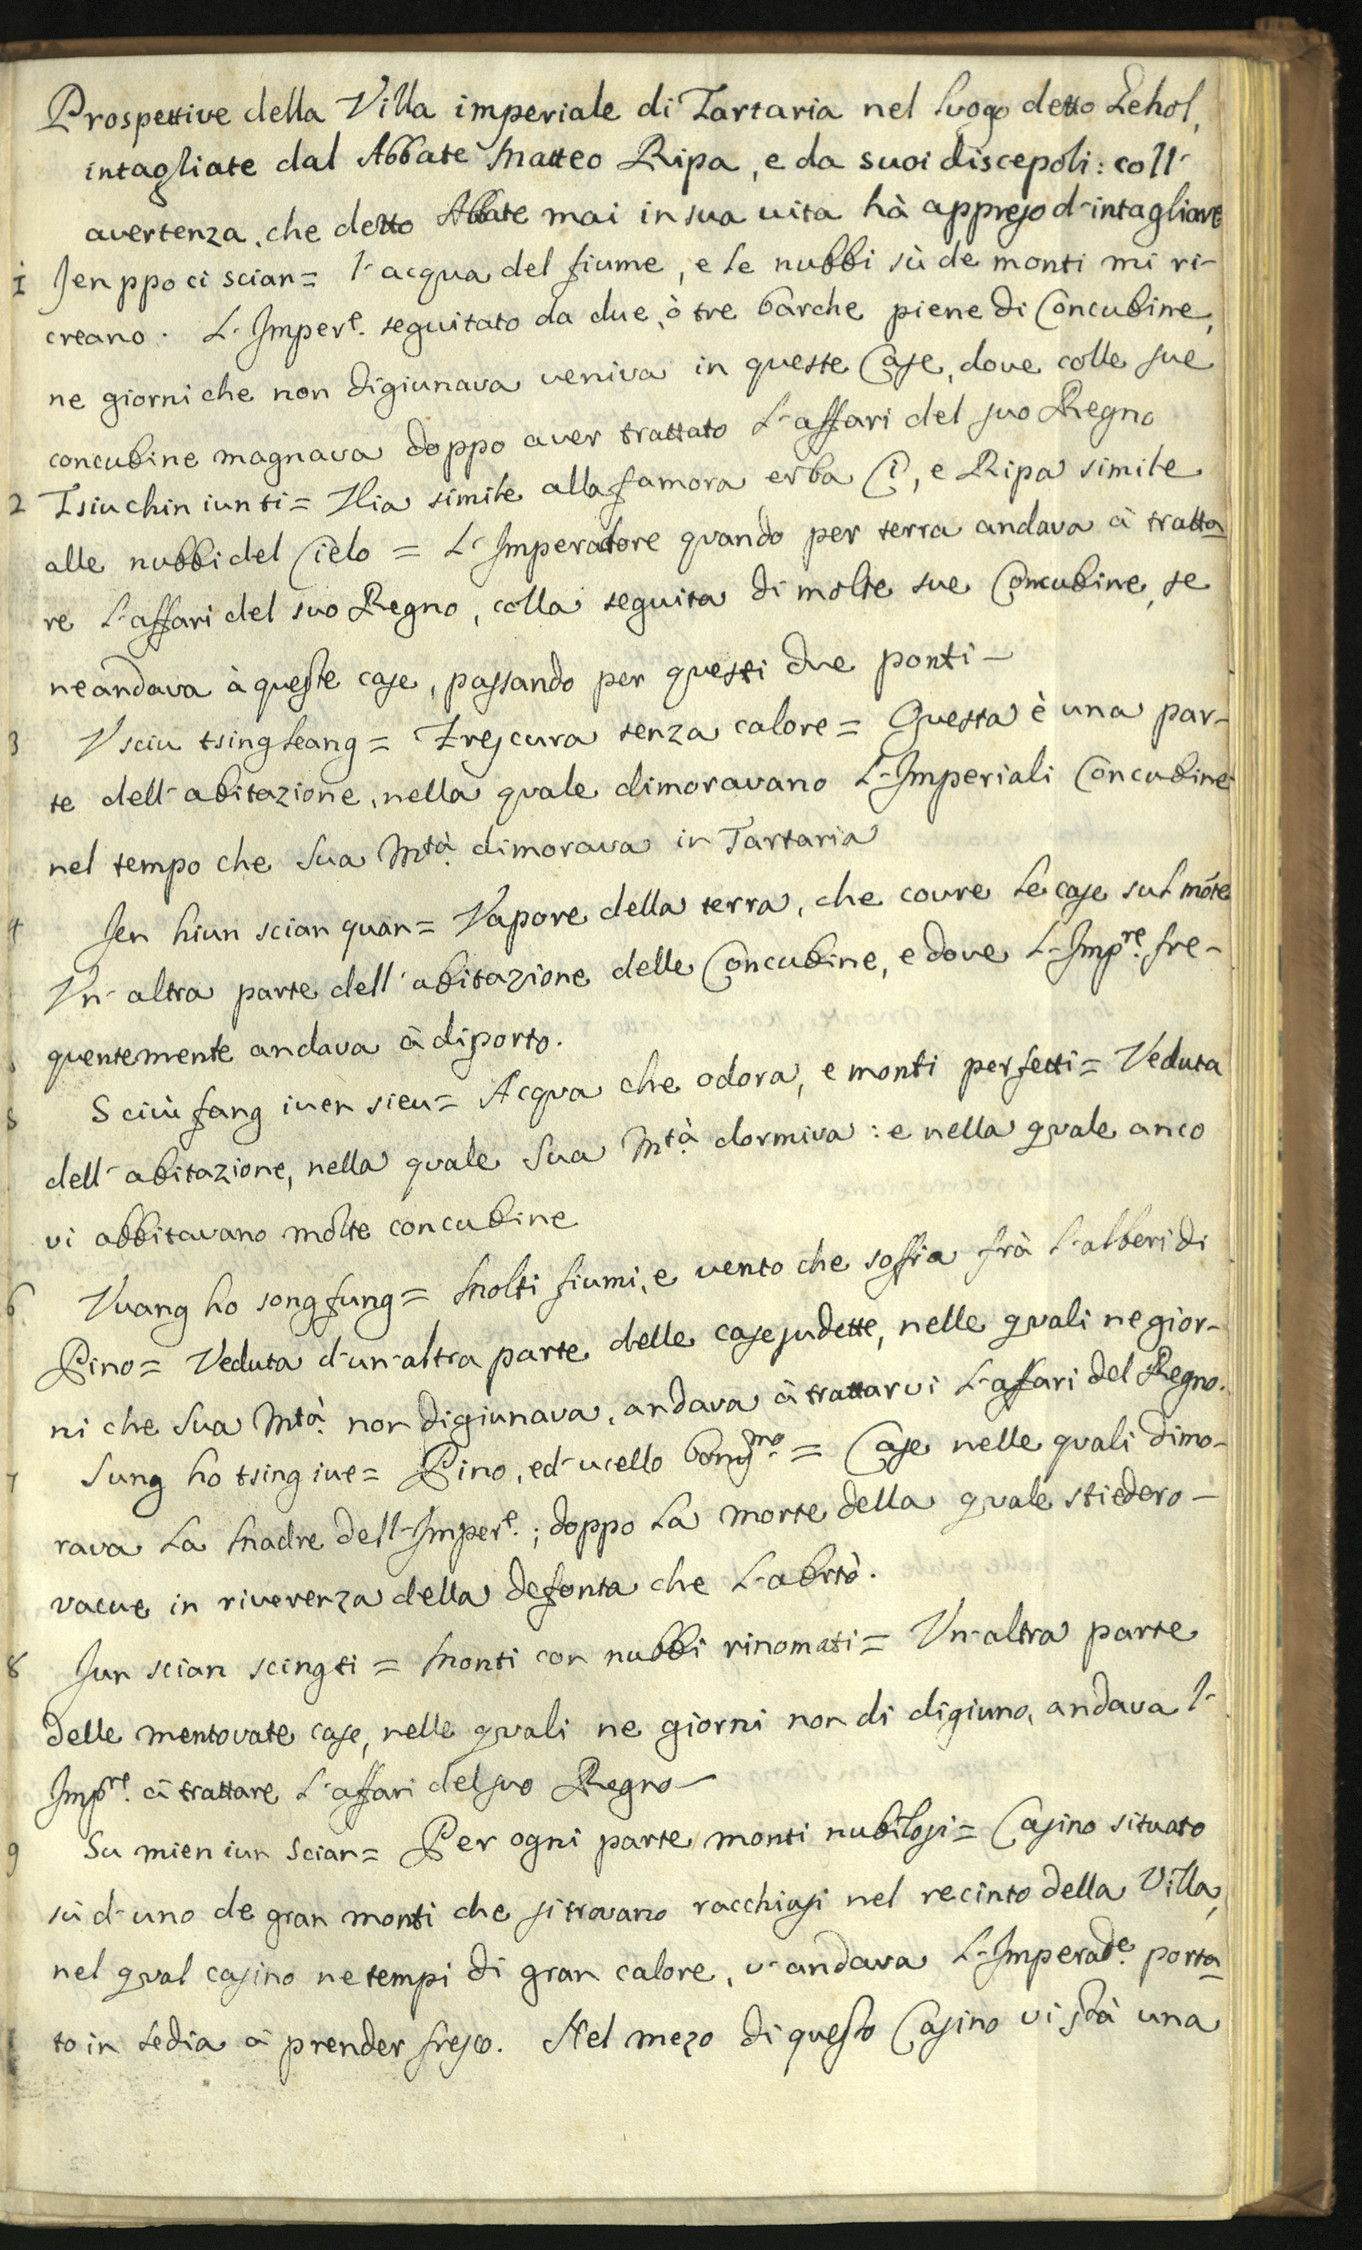 Prospettive della Villa imperiale di Tartaria nel luogo detto Zehol,
intagliate dal Abbate Matteo Ripa, e da suoi discepoli: coll-
avertenza, che detto Abbate mai in sua vita hà appreso d-intagliare
1 Jen ppo ci scian = l-acqua del fiume, e le nubbi sù de monti mi ri-
creano. L-Imper.e seguitato da due, ò tre barche piene di Concubine,
ne giorni che non digiunava veniva in queste Case, dove colle sue
concubine magnava doppo aver trattato L-affari del suo Regno
2 Tsiu chin iun ti = Via simile alla famosa erba Ci, e Ripa simile
alle nubbi del Cielo = L-Imperatore quando per terra andava à tratta
re l-affari del suo Regno, colla seguita di molte sue Concubine, se
ne andava à queste case, passando per questi due ponti -
3 Vsciu tsing leang = Frescura senza calore = Questa è una par-
te dell-abitazione, nella quale dimoravano L-Imperiali Concubine
nel tempo che Sua M.tà dimorava in Tartaria
4 Jen hiun scian quan = Vapore della terra, che covre le case sul mõte
Vn-altra parte dell-abitazione delle Concubine, e dove L-Imp.re fre-
quentemente andava à diporto.
5 Sciùi fang iven sieu = Acqua che odora, e monti perfetti = Veduta
dell-abitazione, nella quale Sua M.tà dormiva: e nella quale anco
vi abbitavano molte concubine
6 Vuang ho song fung = Molti fiumi, e vento che soffia frà l-alberi di
Pino = Veduta d-un-altra parte delle case sudette, nelle quali ne gior-
ni che Sua M.tà non digiunava, andava à trattarvi L-affari del Regno.
7 Sung ho tsing iue = Pino, ed-ucello boniss.mo = Case nelle quali dimo-
rava La Madre dell-Imper.e; doppo La morte della quale stiedero -
vacue in riverenza della defonta che L-abitò.
8 Jun scian scing ti = Monti con nubbi rinomati = Vn-altra parte
delle mentovate case, nelle quali ne giorni non di digiuno, andava l-
Imp.re à trattare L-affari del suo Regno -
9 Su mien iun Scian = Per ogni parte monti nubilosi = Casino situato
sù d-uno de gran monti che si trovano racchiusi nel recinto della Villa,
nel qual casino ne tempi di gran calore, v-andava L-Imperad.e porta
to in sedia à prender fresco. Nel mezo di questo Casino vi stà una